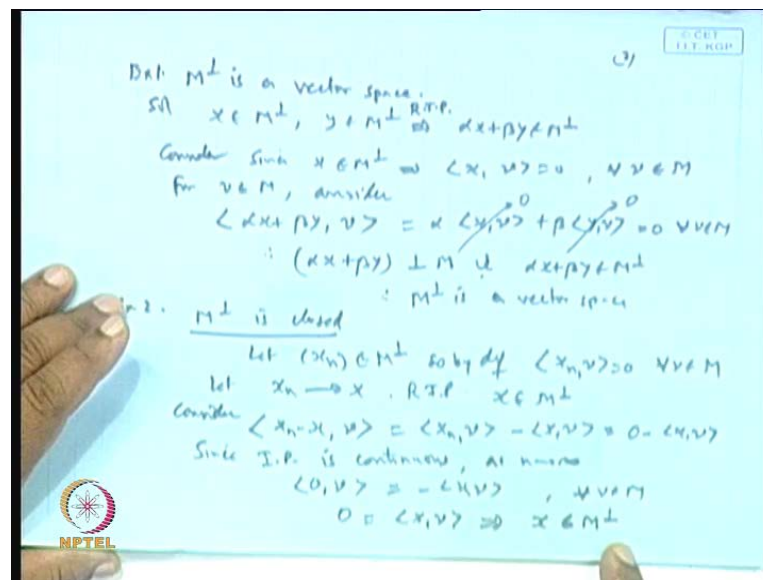 © CET
I.I.T. KGP
(3)
M⊥ is a vector space.
Sol x ∈ M⊥, y ∈ M⊥ R.T.P. ⇒ αx+βy ∈ M⊥
Consider Since x ∈ M⊥ ⇒ <x, v> = 0, ∀ v ∈ M
For v ∈ M, consider
<αx+βy, v> = α <x,v> 0 + β <y,v> 0 = 0 ∀ v ∈ M
∴ (αx+βy) ⊥ M αx+βy ∈ M⊥
∴ M⊥ is a vector space
2. M⊥ is closed
Let (xn) ∈ M⊥ so by def <xn,v> = 0 ∀ v ∈ M
Let xn → x. R.T.P. x ∈ M⊥
Consider <xn-x, v> = <xn,v> - <x,v> = 0 - <x,v>
Since I.P. is continuous, as n→∞
<0,v> = -<x,v>, ∀ v ∈ M
0 = <x,v> ⇒ x ∈ M⊥
NPTEL